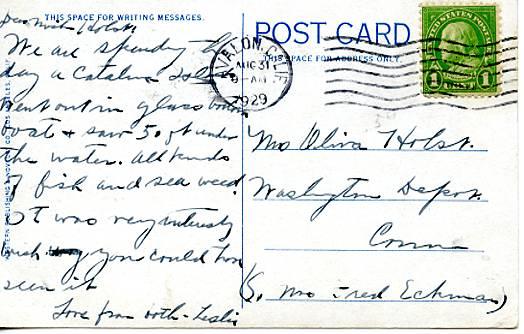 THIS SPACE FOR WRITING MESSAGES.
Dear Mrs. Holst.
We are spending the
day a Catalina Isl
Went out in glass bottom
boat & saw 50 ft under
the water. All kinds
of fish and sea weed.
It was very interesting
wish you could have
seen it
Love from both - Leslie
POST CARD
THIS SPACE FOR ADDRESS ONLY.
AVALON, CALIF.
AUG 31
9 - AM
1929
UNITED STATES POSTAGE
1 CENT 1
Mrs Oliva Holst.
Washington Depot.
Conn
(c/o Mrs Fred Eckman)